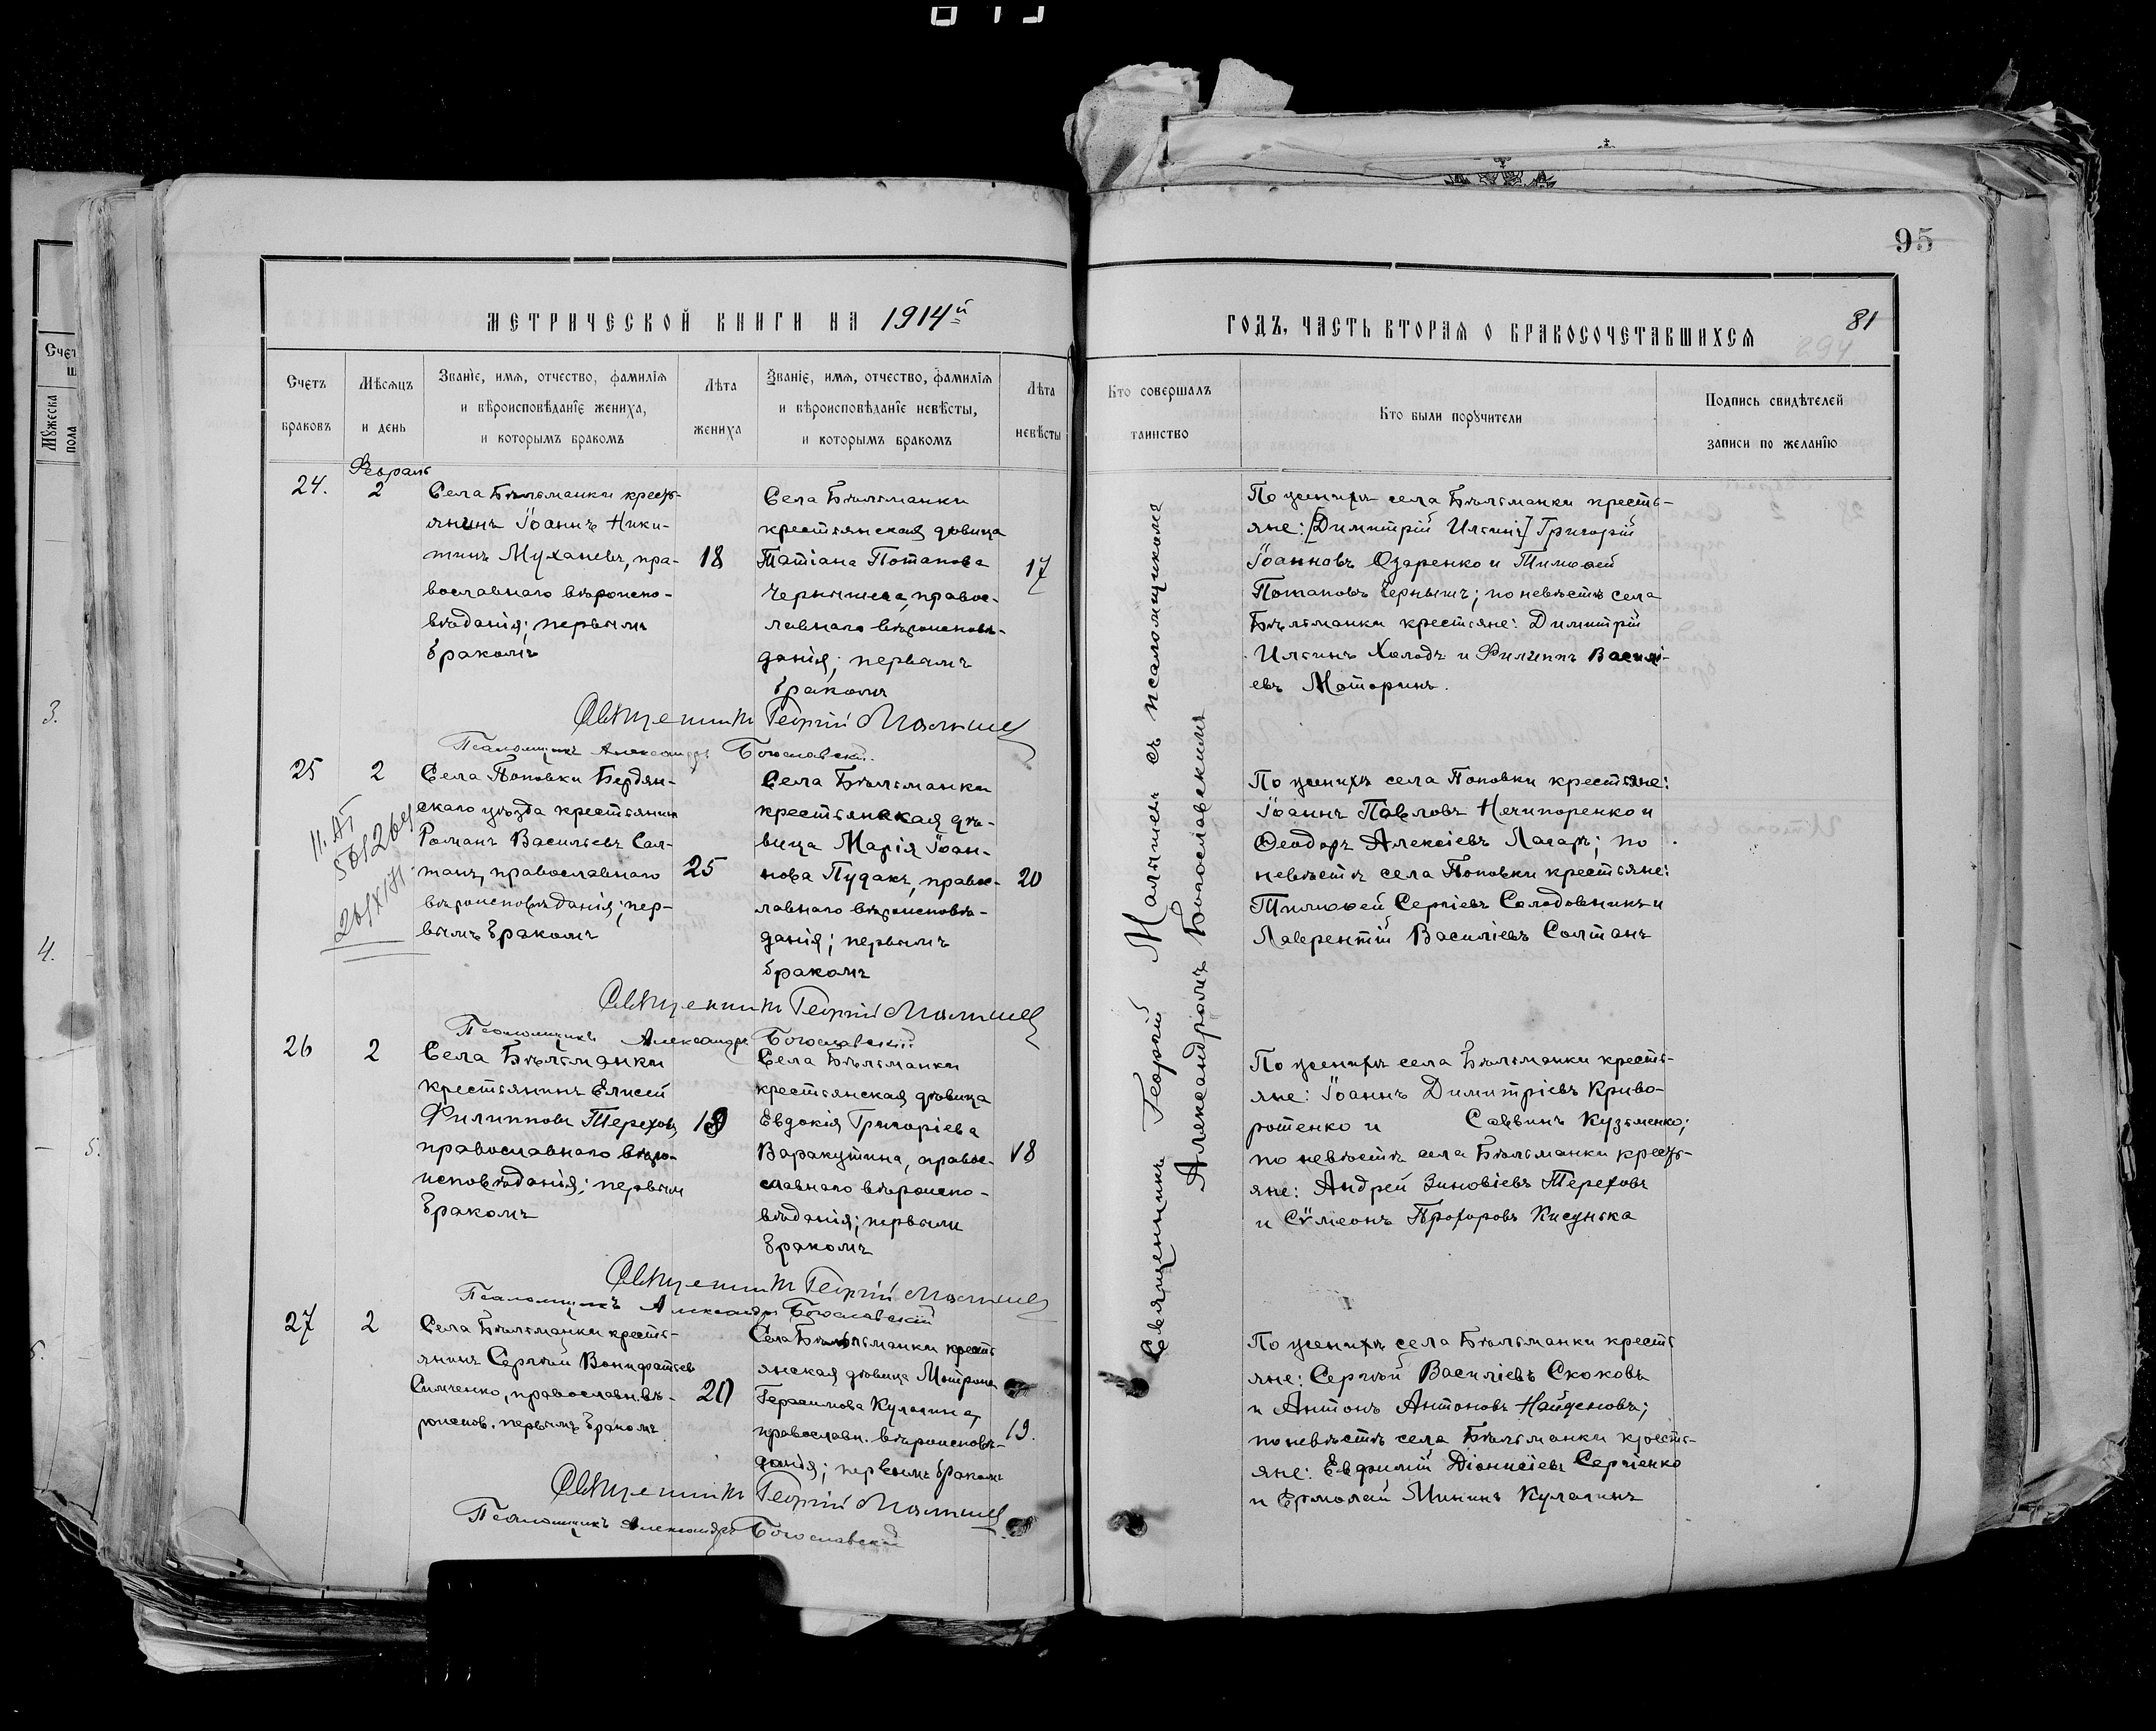 95
МЕТРИЧЕСКОЙ КНИГИ НА 1914й
ГОДЪ, ЧАСТЬ ВТОРАЯ О БРАКОСОЧЕТАВШИХСЯ
81
294
Счетъ
браковъ
Мѣсяцъ
и день
Званіе, имя, отчество, фамилія
и вѣроисповѣданіе жениха,
и которымъ бракомъ
Лѣта
жениха
Званіе, имя, отчество, фамилія
и вѣроисповѣданіе невѣсты,
и которымъ бракомъ
Лѣта
невѣсты
Кто совершалъ
таинство
Кто были поручители
Подпись свидѣтелей
записи по желанію
Февраль
24.
2
Села Бѣльманки кресть-
янинъ Іоаннъ Ники-
тинъ Муханевъ, пра-
вославнаго вѣроиспо-
вѣданія; первымъ
бракомъ
18
Села Бѣльманки
крестьянская дѣвица
Татіана Потапова
Чернышева, правос-
лавнаго вѣроисповѣ-
данія; первымъ
бракомъ
17
По женихѣ села Бѣльманки кресть-
яне: [Димитрій Ильинъ] Григорій
Іоанновъ Озаренко и Тимоѳей
Потаповъ Чернышъ; по невѣстѣ села
Бѣльманки крестьяне: Димитрій
Ильинъ Холодъ и Филиппъ Василі-
евъ Моторинъ.
Священникъ Георгій Малышев
Псаломщикъ Александръ Богославскій.
25
2
Села Поповки Бердян-
скаго уѣзда крестьянинъ
Романъ Васильевъ Сал-
танъ, православнаго
вѣроисповѣданія; пер-
вымъ бракомъ
25
Села Бѣльманки
крестьянская дѣ-
вица Марія Іоан-
нова Пудакъ, правос-
лавнаго вѣроисповѣ-
данія; первымъ
бракомъ
20
По женихѣ села Поповки крестьяне:
Іоаннъ Павловъ Нечипоренко и
Ѳеодоръ Алексіевъ Лагаръ; по
невѣстѣ села Поповки крестьяне:
Тимоѳей Сергіевъ Солодовникъ и
Лаврентій Василіевъ Солтанъ
Священникъ Георгій Малышев
Псаломщикъ Александръ Богославскій
26
2
Села Бѣльманки
крестьянинъ Елисей
Филипповъ Тереховъ,
православнаго вѣро-
исповѣданія; первымъ
бракомъ
Села Бѣльманки
крестьянская дѣвица
Евдокія Григоріева
Варакутина, правос-
славнаго вѣроиспо-
вѣданія; первымъ
бракомъ
18
По женихѣ села Бѣльманки кресть-
яне: Іоаннъ Димитріевъ Криво-
ротенко и Саввинъ Кузьменко;
по невѣстѣ села Бѣльманки кресть-
яне: Андрей Зиновіевъ Тереховъ
и Сѵмеонъ Прохоровъ Кисунька
Священникъ Георгій Малышев
Псаломщикъ Александръ Богославскій
27
2
Села Бѣльманки кресть-
янинъ Сергѣй Вонифатьевъ
Симченко, православн. вѣ-
роиспов. первымъ бракомъ
20
Села Бѣльманки кресть
янская дѣвица Матрона
Герасимова Кулагина,
православн. вѣроисповѣ-
данія; первымъ бракомъ
19.
По женихѣ села Бѣльманки кресть
яне: Сергѣй Василіевъ Скоковъ
и Антонъ Антоновъ Найденовъ;
по невѣстѣ села Бѣльманки кресть-
яне: Евфимій Діонисіевъ Сергіенко
и Ермолай Мининъ Кулагинъ
Священникъ Георгій Малышев
Псаломщикъ Александръ Богославскій
Священникъ Георгій Малышевъ съ псаломщикомъ
Александромъ Богославскимъ
Счет
Мужеска
пола
3.
4.
5.